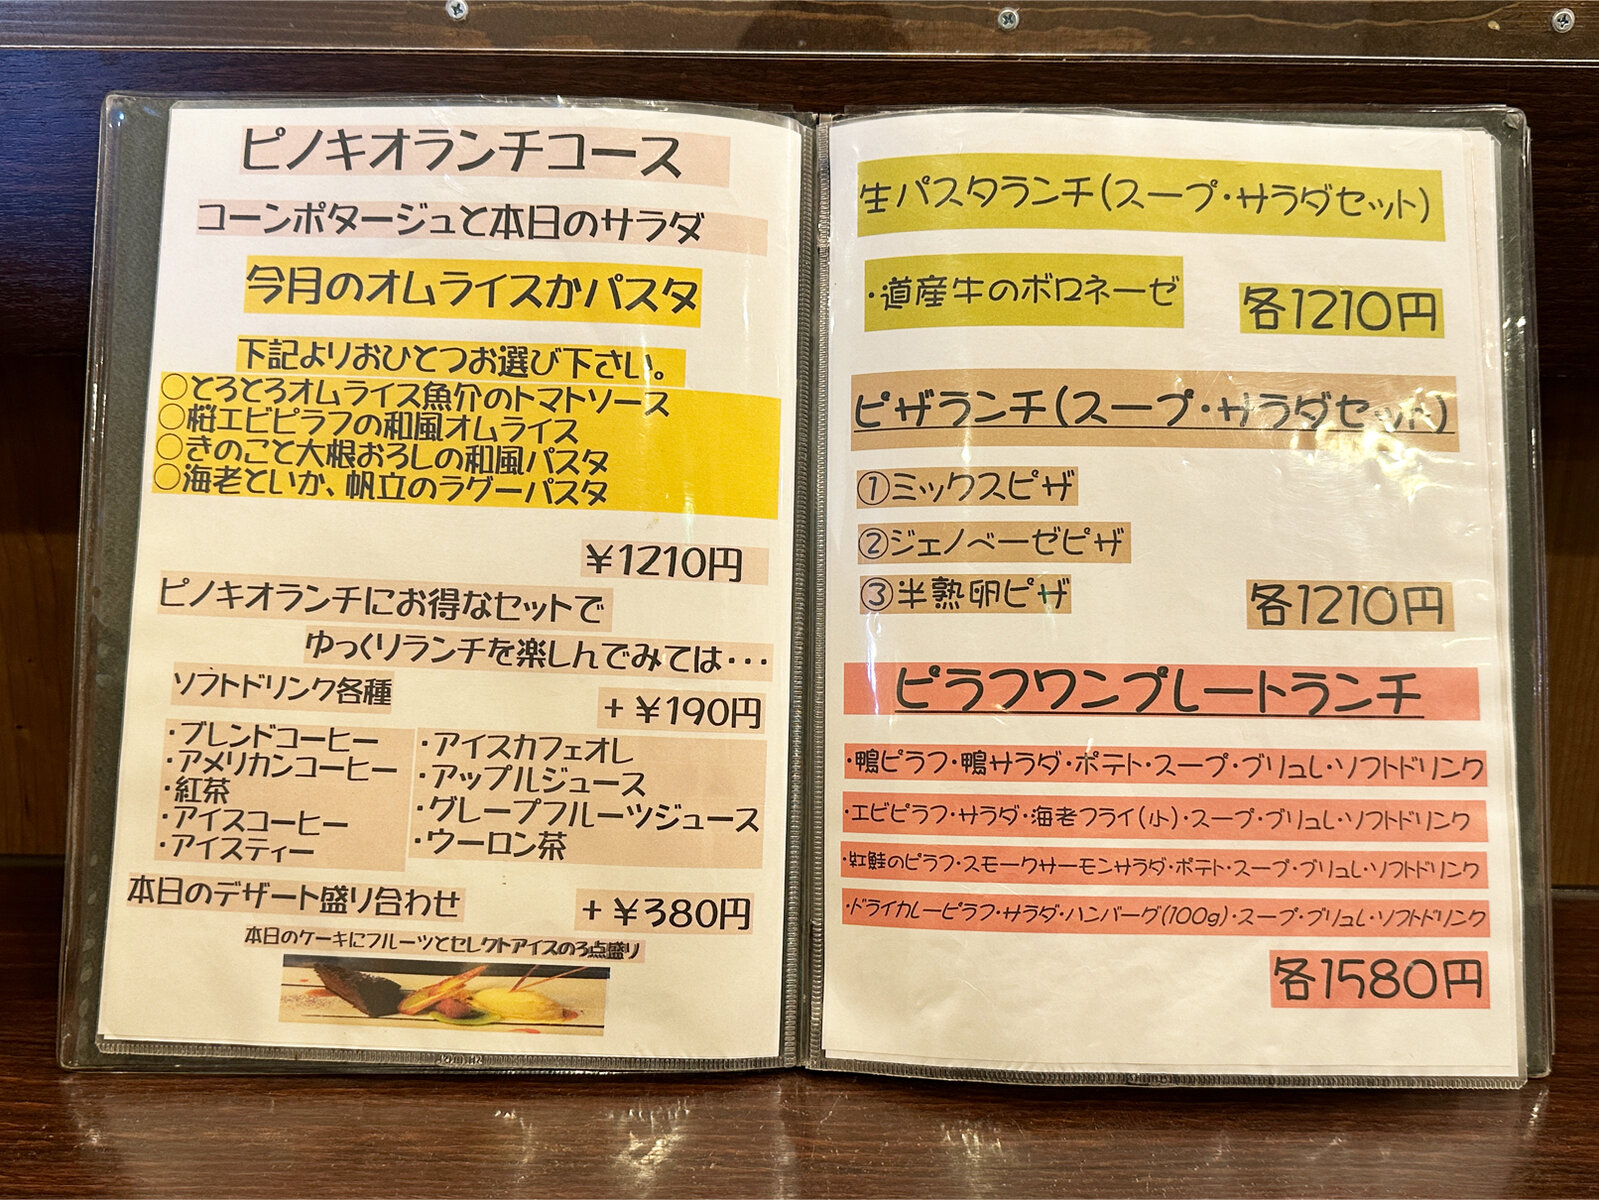 ピノキオランチコース
コーンポタージュと本日のサラダ
今月のオムライスかパスタ
下記よりおひとつお選び下さい。
○とろとろオムライス魚介のトマトソース
○桜エビピラフの和風オムライス
○きのこと大根おろしの和風パスタ
○海老といか、帆立のラグーパスタ
￥1210円
ピノキオランチにお得なセットで
ゆっくりランチを楽しんでみては・・・
ソフトドリンク各種
+￥190円
・ブレンドコーヒー
・アメリカンコーヒー
・紅茶
・アイスコーヒー
・アイスティー
・アイスカフェオレ
・アップルジュース
・グレープフルーツジュース
・ウーロン茶
本日のデザート盛り合わせ
+￥380円
本日のケーキにフルーツとセレクトアイスの3点盛り
生パスタランチ(スープ・サラダセット)
・道産牛のボロネーゼ
各1210円
ピザランチ(スープ・サラダセット)
①ミックスピザ
②ジェノベーゼピザ
③半熟卵ピザ
各1210円
ピラフワンプレートランチ
・鴨ピラフ・鴨サラダ・ポテト・スープ・ブリュレ・ソフトドリンク
・エビピラフ・サラダ・海老フライ(小)・スープ・ブリュレ・ソフトドリンク
・紅鮭のピラフ・スモークサーモンサラダ・ポテト・スープ・ブリュレ・ソフトドリンク
・ドライカレーピラフ・サラダ・ハンバーグ(100g)・スープ・ブリュレ・ソフトドリンク
各1580円